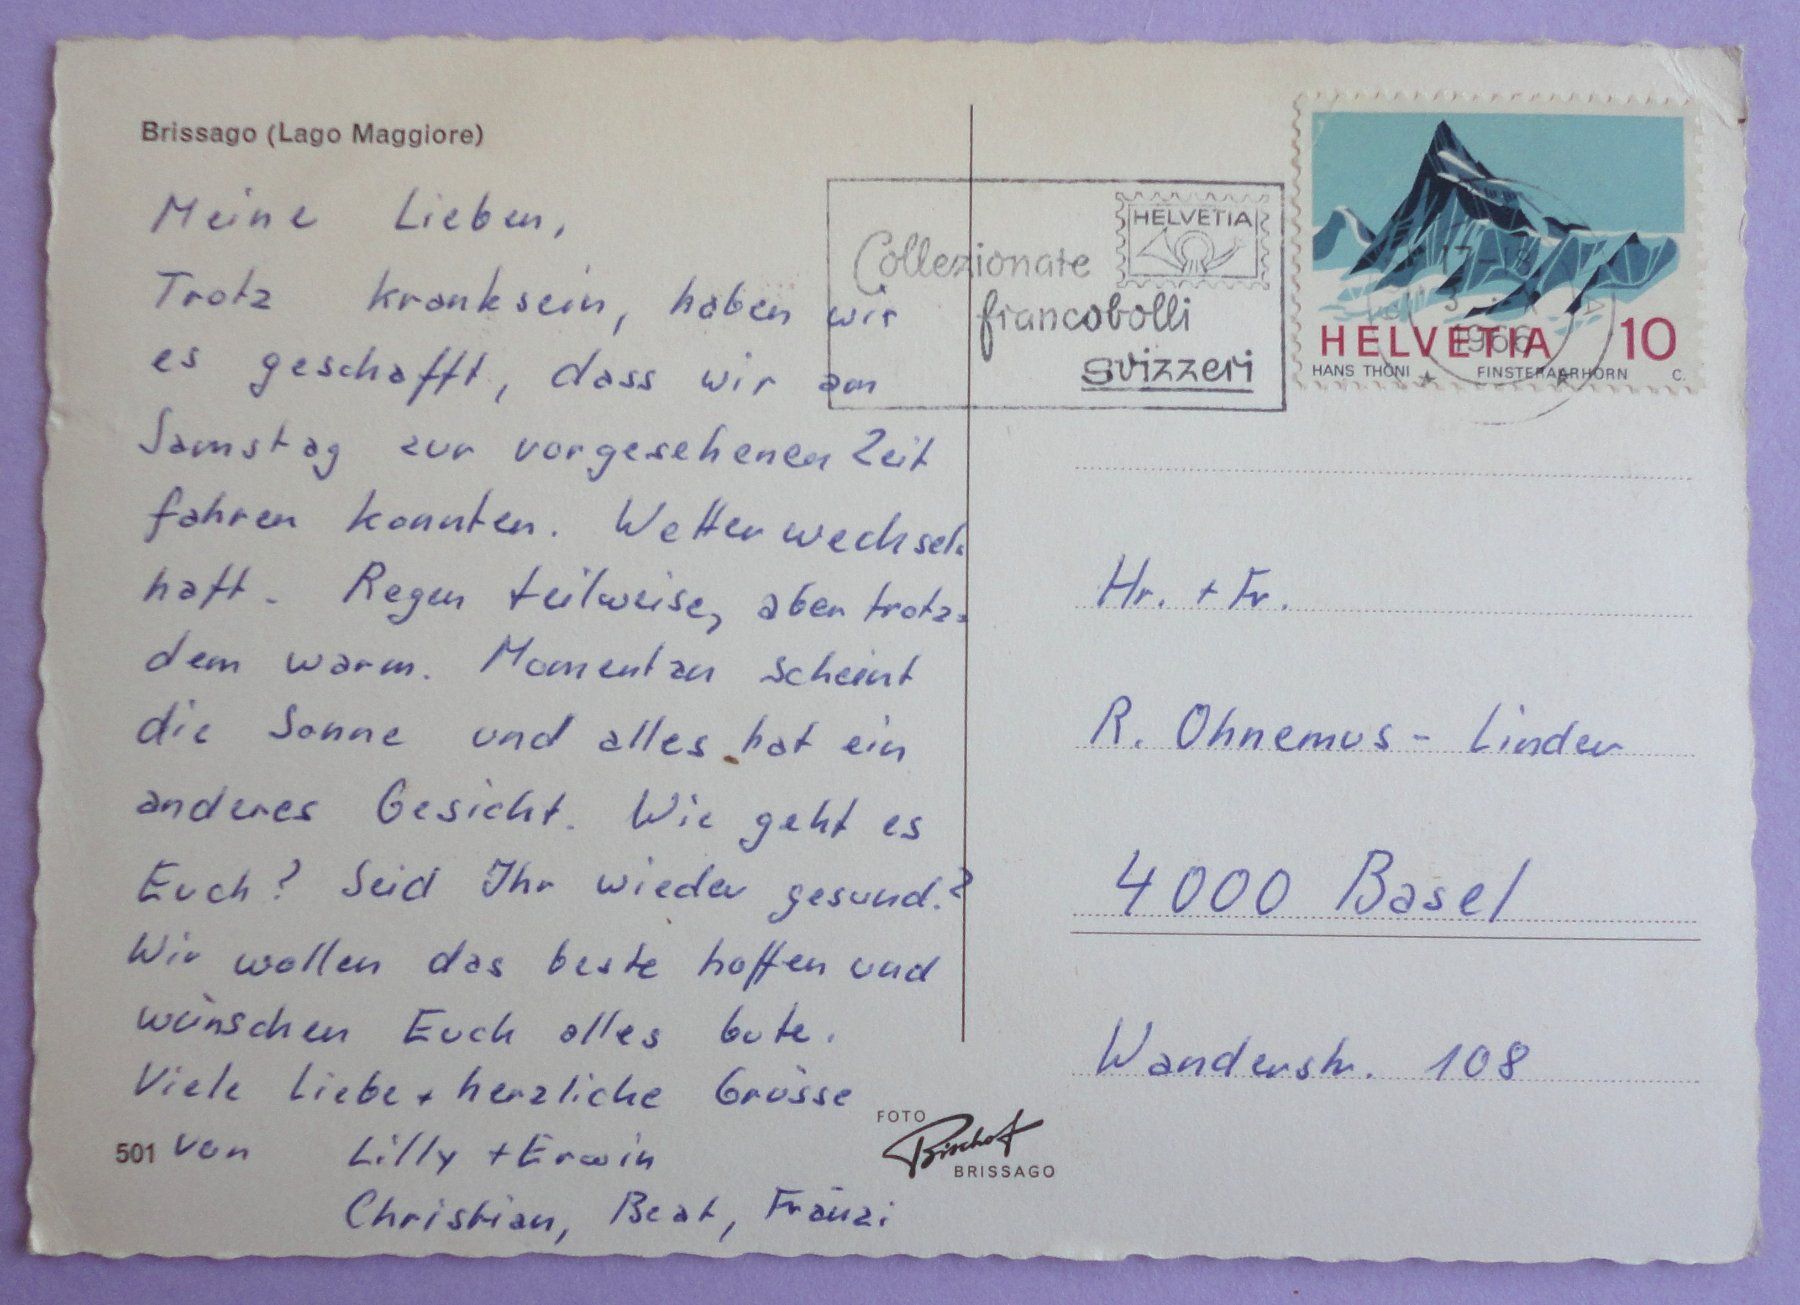 Brissago (Lago Maggiore)
Meine Lieben,
Trotz kranksein, haben wir
es geschafft, dass wir am
Samstag zur vorgesehenen Zeit
fahren konnten. Wetter wechsel-
haft. Regen teilweise, aber trotz-
dem warm. Momentan scheint
die Sonne und alles hat ein
anderes Gesicht. Wie geht es
Euch? Seid Ihr wieder gesund.?
Wir wollen das beste hoffen und
wünschen Euch alles Gute.
Viele Liebe + herzliche Grüsse
von Lilly + Erwin
Christian, Beat, Fränzi
501
FOTO
Bischof
BRISSAGO
Collezionate
francobolli
svizzeri
HELVETIA
1966
HELVETIA 10
HANS THÖNI FINSTERAARHORN C.
Hr. + Fr.
R. Ohnemus - Linder
4000 Basel
Wanderstr. 108